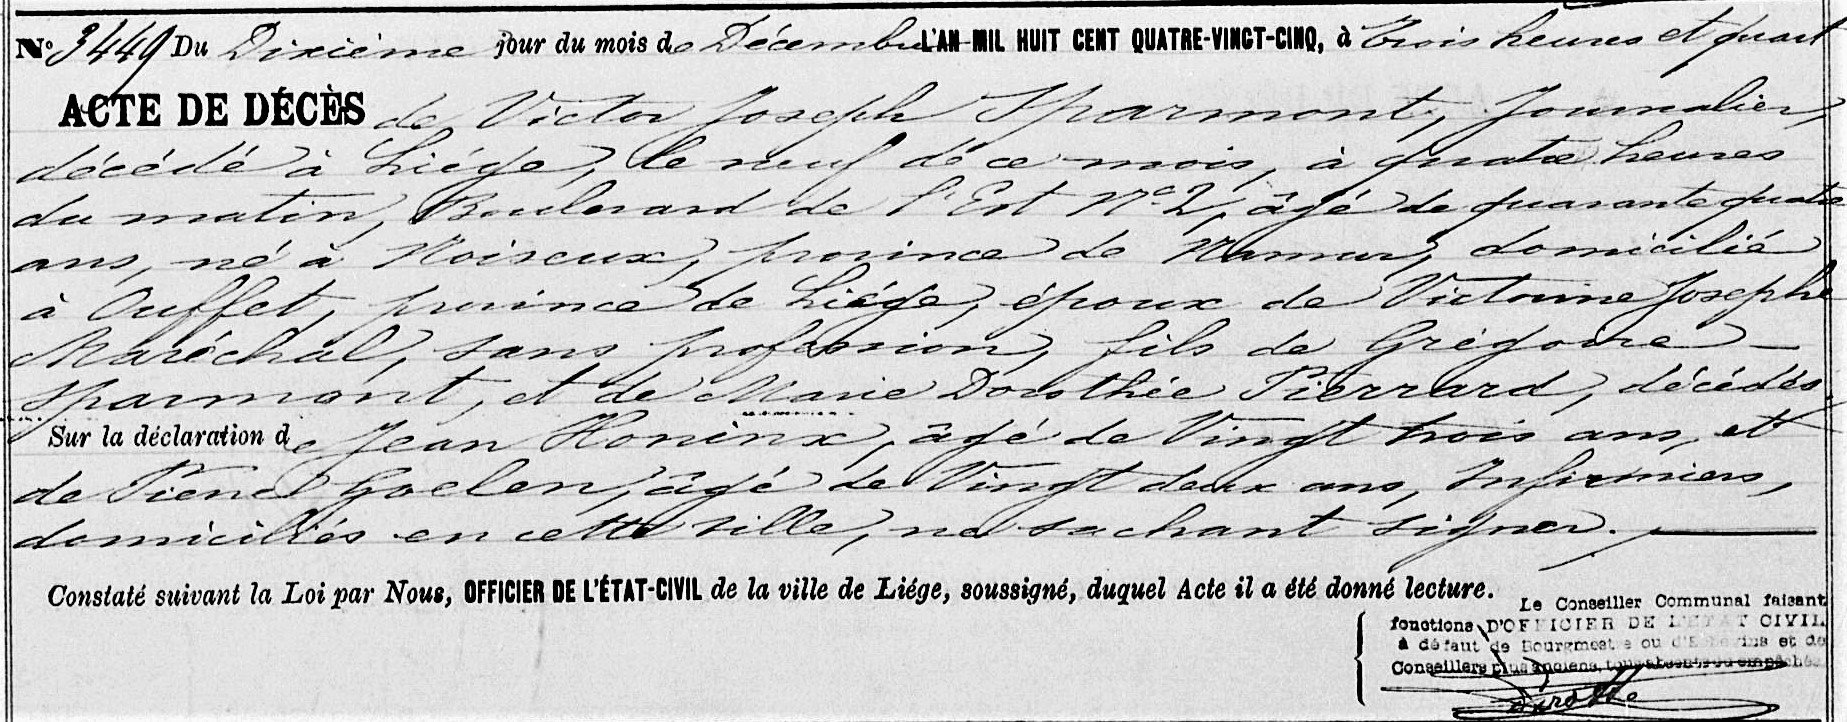 N° 3449 Du Dixième jour du mois de Décembre L'AN MIL HUIT CENT QUATRE-VINGT-CINQ, à Trois heures et quart
ACTE DE DÉCÈS de Victor Joseph Sparmont, Journalier,
décédé à Liége, le neuf de ce mois, à quatre heures
du matin, Boulevard de l'Est N° 2, âgé de quarante quatre
ans, né à Noiseux, province de Namur, domicilié
à Ouffet, province de Liége, époux de Victorine Josephe
Maréchal, sans profession, fils de Grégoire –
Sparmont, et de Marie Dorothée Pierrard, décédés.
Sur la déclaration de Jean Honinx, âgé de Vingt trois ans, et
de Pierre Goelen, âgé de Vingt deux ans, Infirmiers,
domiciliés en cette ville, ne sachant signer.
Constaté suivant la Loi par Nous, OFFICIER DE L'ÉTAT-CIVIL de la ville de Liége, soussigné, duquel Acte il a été donné lecture.
Le Conseiller Communal faisant
fonctions D'OFFICIER DE L'ETAT CIVIL
à défaut de Bourgmestre ou d'Echevins et de
Conseillers plus anciens, tous absents ou empêchés